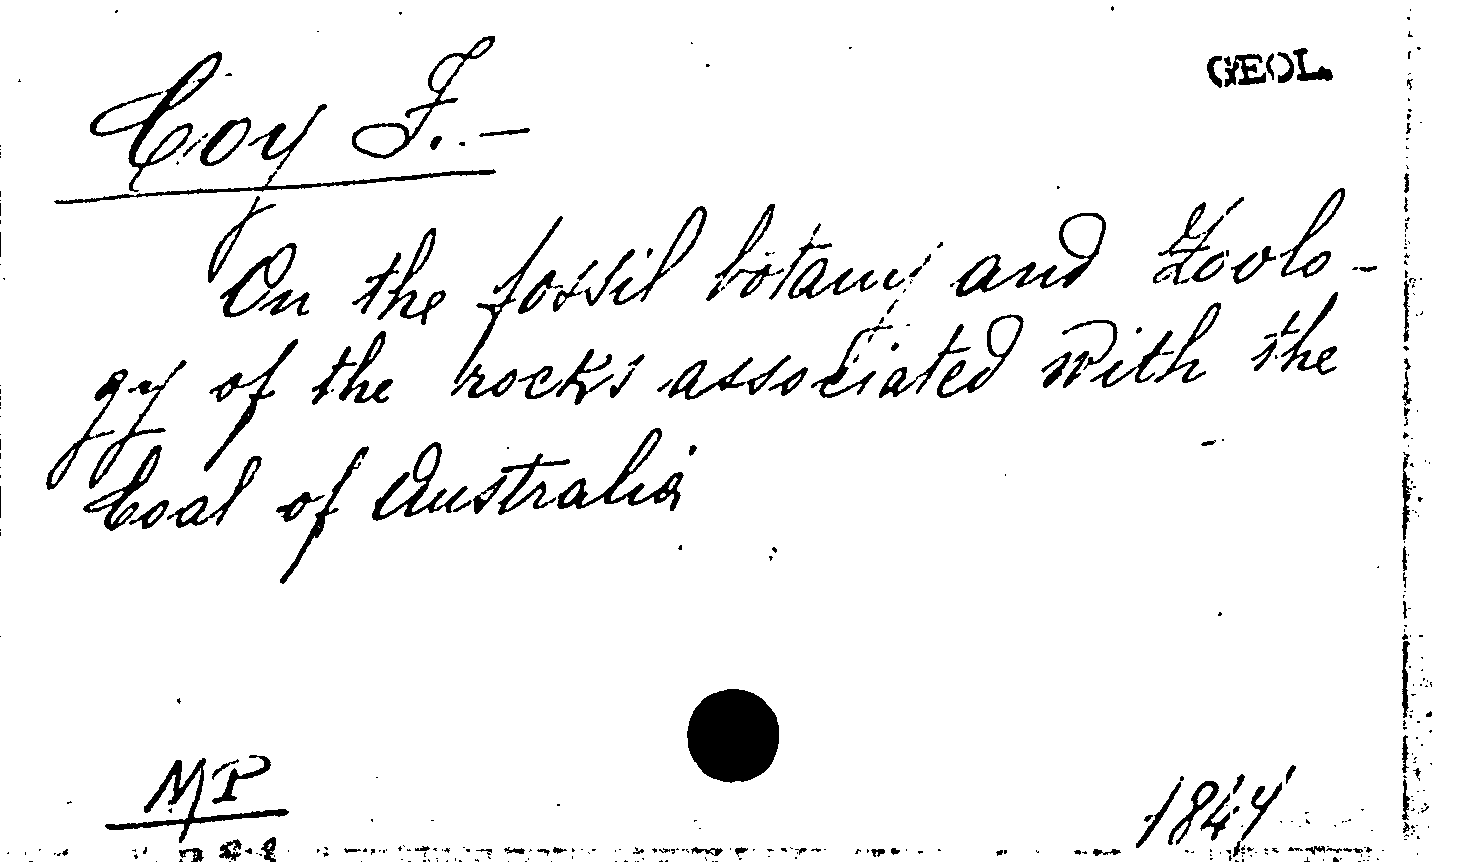 GEOL.
Coy F. —
On the fossil botany and Zoolo-
gy of the rocks associated with the
Coal of Australia
MP